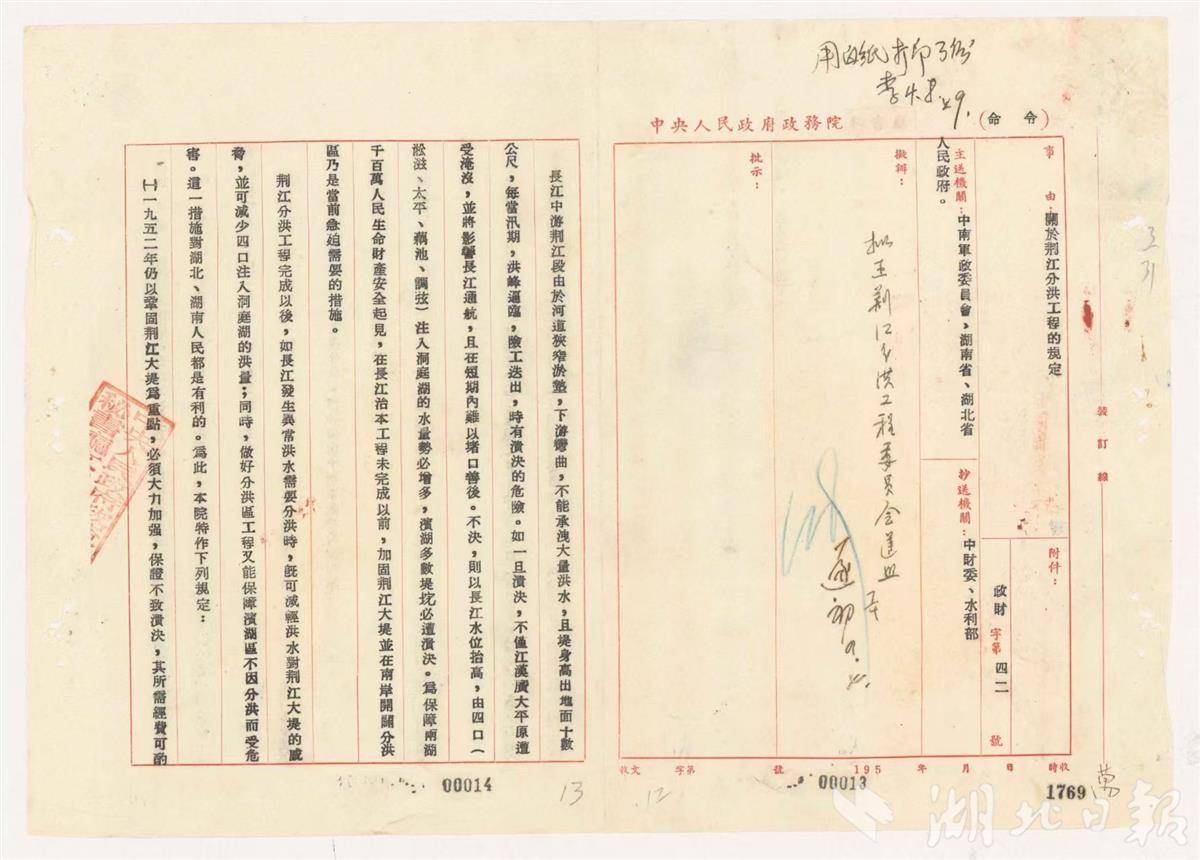 用白紙打印
中央人民政府政務院
(命令)
事由:關於荆江分洪工程的規定
附件:
主送機關:中南軍政委員會,湖南省、湖北省
人民政府。
抄送機關:中財委、水利部
政財字第四二號
擬辦:
批示:
裝訂線
收文 字第 號 195 年 月 日 時收
00013
12
1769
萬
湖北日報
長江中游荆江段由於河道狹窄淤墊,下游彎曲,不能承洩大量洪水,且堤身高出地面十數
公尺,每當汛期,洪峰逼臨,險工迭出,時有潰決的危險。如一旦潰決,不僅江漢廣大平原遭
受淹沒,並將影響長江通航,且在短期內難以堵口善後。不決,則以長江水位抬高,由四口(
淞滋、太平、藕池、調弦)注入洞庭湖的水量勢必增多,濱湖多數堤垸必遭潰決。爲保障兩湖
千百萬人民生命財產安全起見,在長江治本工程未完成以前,加固荆江大堤並在南岸開闢分洪
區乃是當前急迫需要的措施。
荆江分洪工程完成以後,如長江發生異常洪水需要分洪時,旣可減輕洪水對荆江大堤的威
脅,並可減少四口注入洞庭湖的洪量;同時,做好分洪區工程又能保障濱湖區不因分洪而受危
害。這一措施對湖北、湖南人民都是有利的。爲此,本院特作下列規定:
㈠一九五二年仍以鞏固荆江大堤爲重點,必須大力加强,保證不致潰決,其所需經費可酌
00014
13